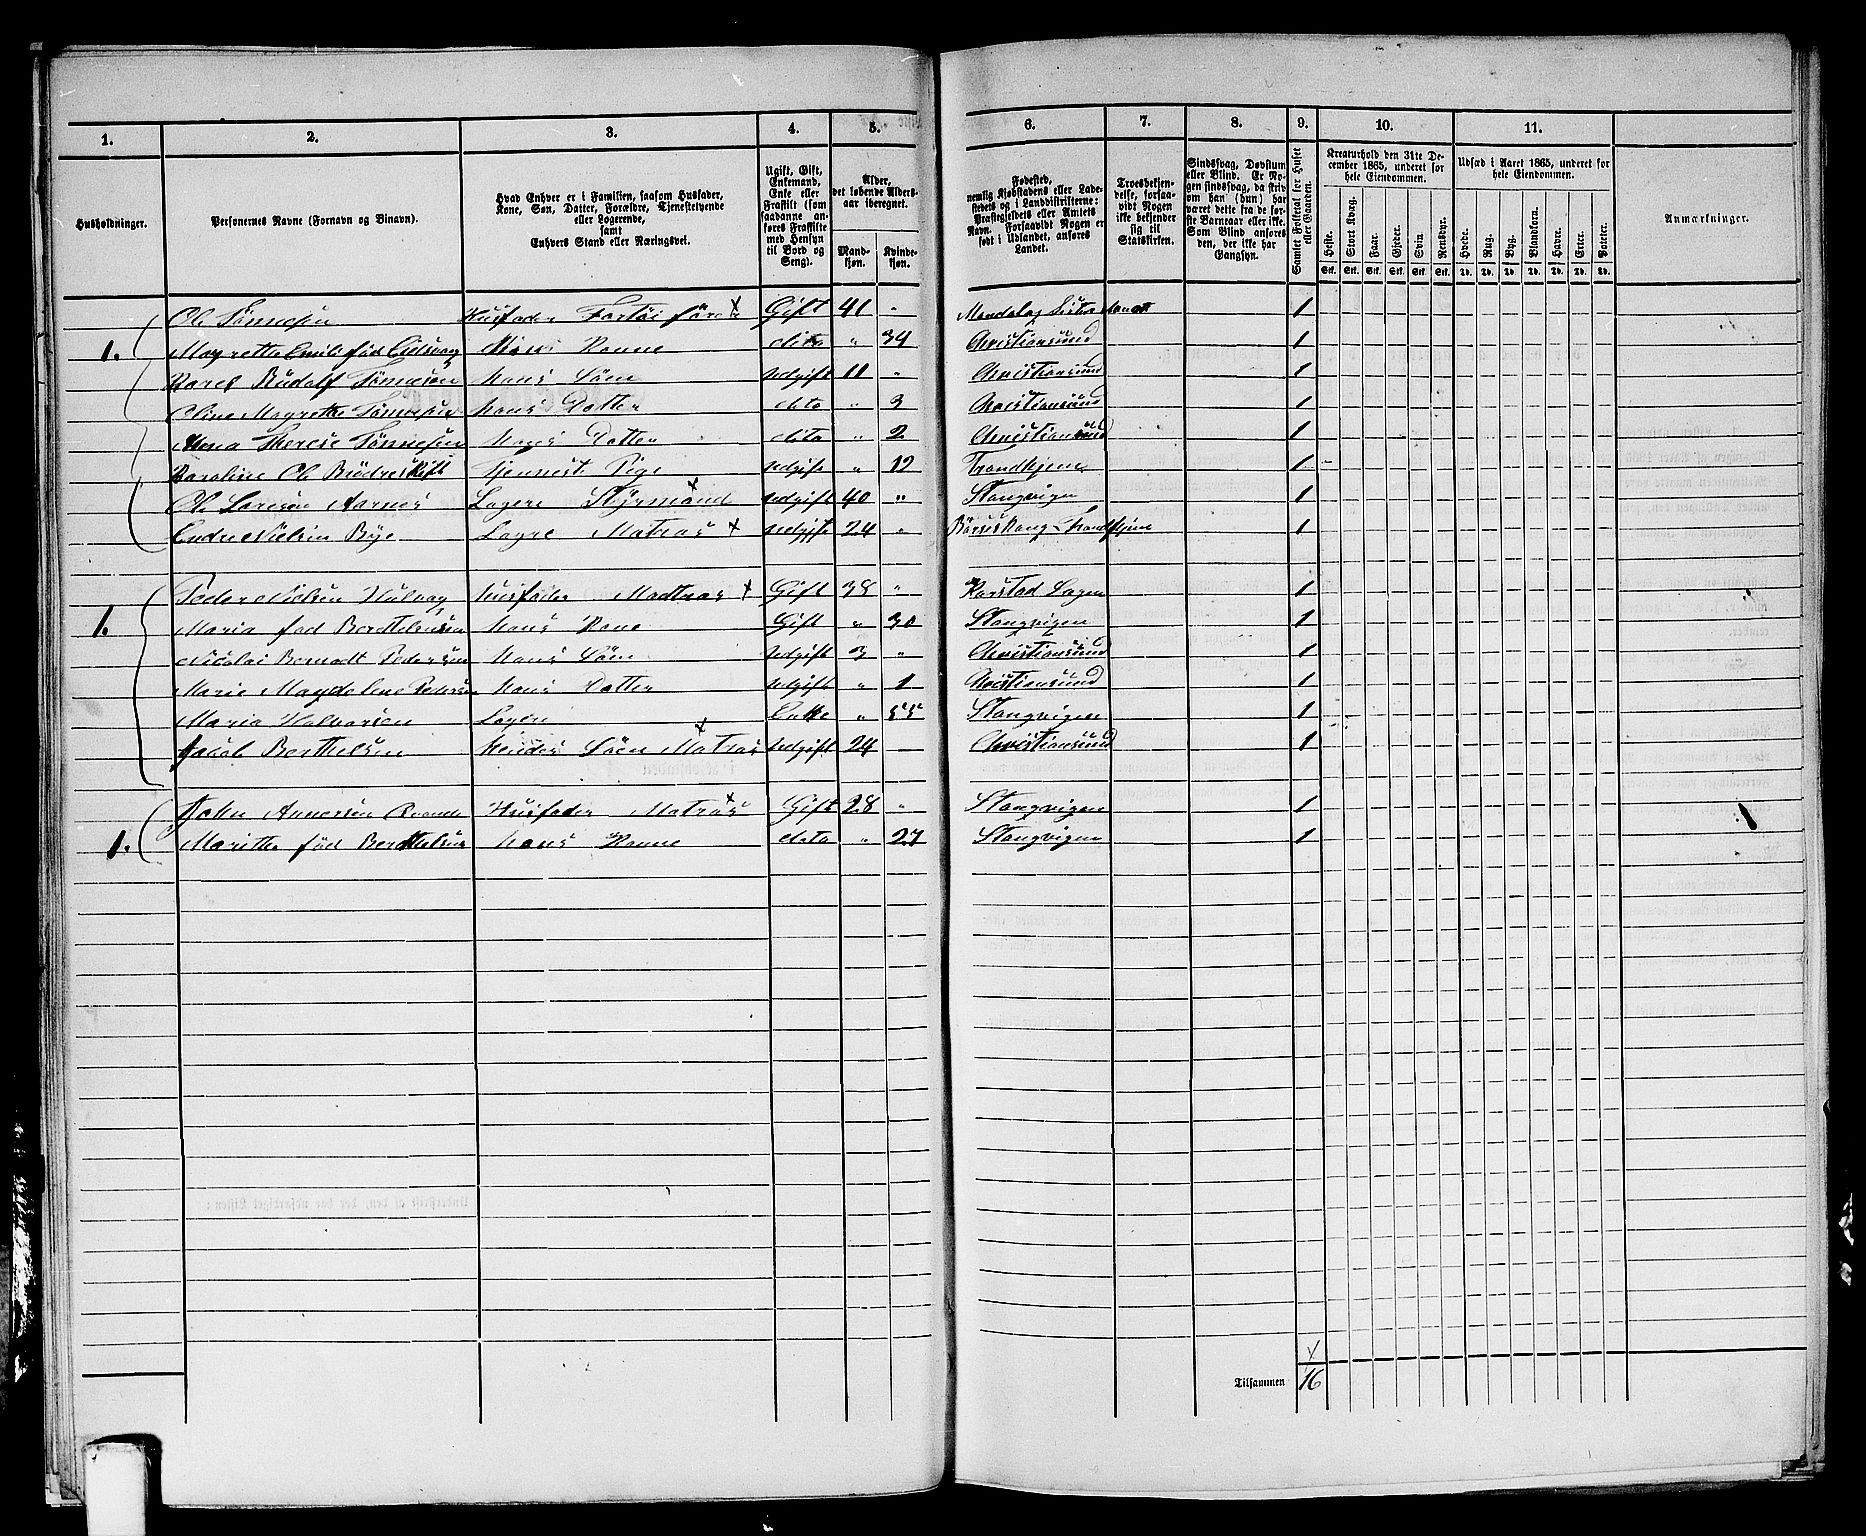 1. 2. 3. 4. 5. 6. 7. 8. 9. 10. 11.
Husholdninger. Personernes Navne (Fornavn og Binavn).
Hvad Enhver er i Familien, saasom Husfader, Kone, Søn, Datter, Forældre, Tjenestetyende eller Logerende, samt Enhvers Stand eller Næringsvei.
Ugift, Gift, Enkemand, Enke eller Fraskilt (som saadanne anføres Fraskilte med Hensyn til Bord og Seng).
Alder, det løbende Alders-aar iberegnet. Mandkjøn. Kvindekjøn.
Fødested, nemlig Kjøbstadens eller Ladestedets og i Landdistrikterne: Præstegjeldets eller Amtets Navn. Forsaavidt Nogen er født i Udlandet, anføres Landet.
Troesbekjendelse, forsaavidt Nogen ikke bekjender sig til Statskirken.
Sindssvag, Døvstum eller Blind. Er Nogen sindssvag, da skriv om han (hun) har været dette fra de første Barneaar eller ikke. Som Blind anføres den, der ikke har Gangsyn.
Samlet Folketal for Huset eller Gaarden.
Kreaturhold den 31te December 1865, underet for hele Eiendommen.
Heste. Stort Kvæg. Faar. Gjeder. Svin Rensdyr.
Stk. Stk. Stk. Stk. Stk. Stk.
Udsæd i Aaret 1865, underet for hele Eiendommen.
Hvede. Rug. Byg. Blandkorn. Havre. Erter. Poteter.
Td. Td. Td. Td. Td. Td. Td.
Anmærkninger.
Ole Tønnesen Husfader x Gift 41 " 1
1. Magrethe Emilie fød Hans Konne dito " 34 Christiansund 1
Karel Rudolf Tønnesen Hans Søn Uedgift 11 " Christiansund 1
Oline Magrethe Tønnesen Hans Datter dito " 3 Christiansund 1
Therese Tønnesen Hans Datter dito " 2 Christiansund 1
Karoline Ol Brødreskift Tjennest. Pige Uedgift " 12 Trondhjem 1
Ole Aarnes Logere Styrmand x Uedgift 40 " Stangvigen 1
Endre Nielsen Bye Logre Matros x Uedgift 24 " 1
Peder Nielsen Husfader Madtros x Gift 38 " 1
1. Maria fød Berthelsen Hans Kone Gift " 30 Stangvigen 1
Nicolai Bernodt Pedersen Hans Søn Uedgift 3 " Christiansund 1
Marie Magdelene Pedersen Hans Datter Uedgift " 1 Christiansund 1
Maria Halvorsen Logere Enke " 55 Stangvigen 1
Jacob Berthelsen Hendes Søn Matros x Uedgift 24 Christiansund 1
John Annersen Husfader Matros x Gift 28 " Stangvigen 1
1. Marithe fød Berthelsen Hans Konne dito " 27 Stangvigen 1
Tilsammen 16